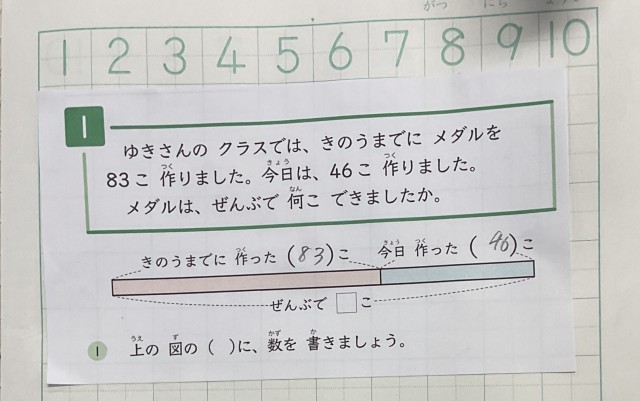 1 2 3 4 5 6 7 8 9 10
1
ゆきさんの クラスでは、きのうまでに メダルを
83こ 作りました。今日は、46こ 作りました。
メダルは、ぜんぶで 何こ できましたか。
きのうまでに 作った (83)こ 今日 作った (46)こ
ぜんぶで □こ
1 上の 図の ( )に、数を 書きましょう。